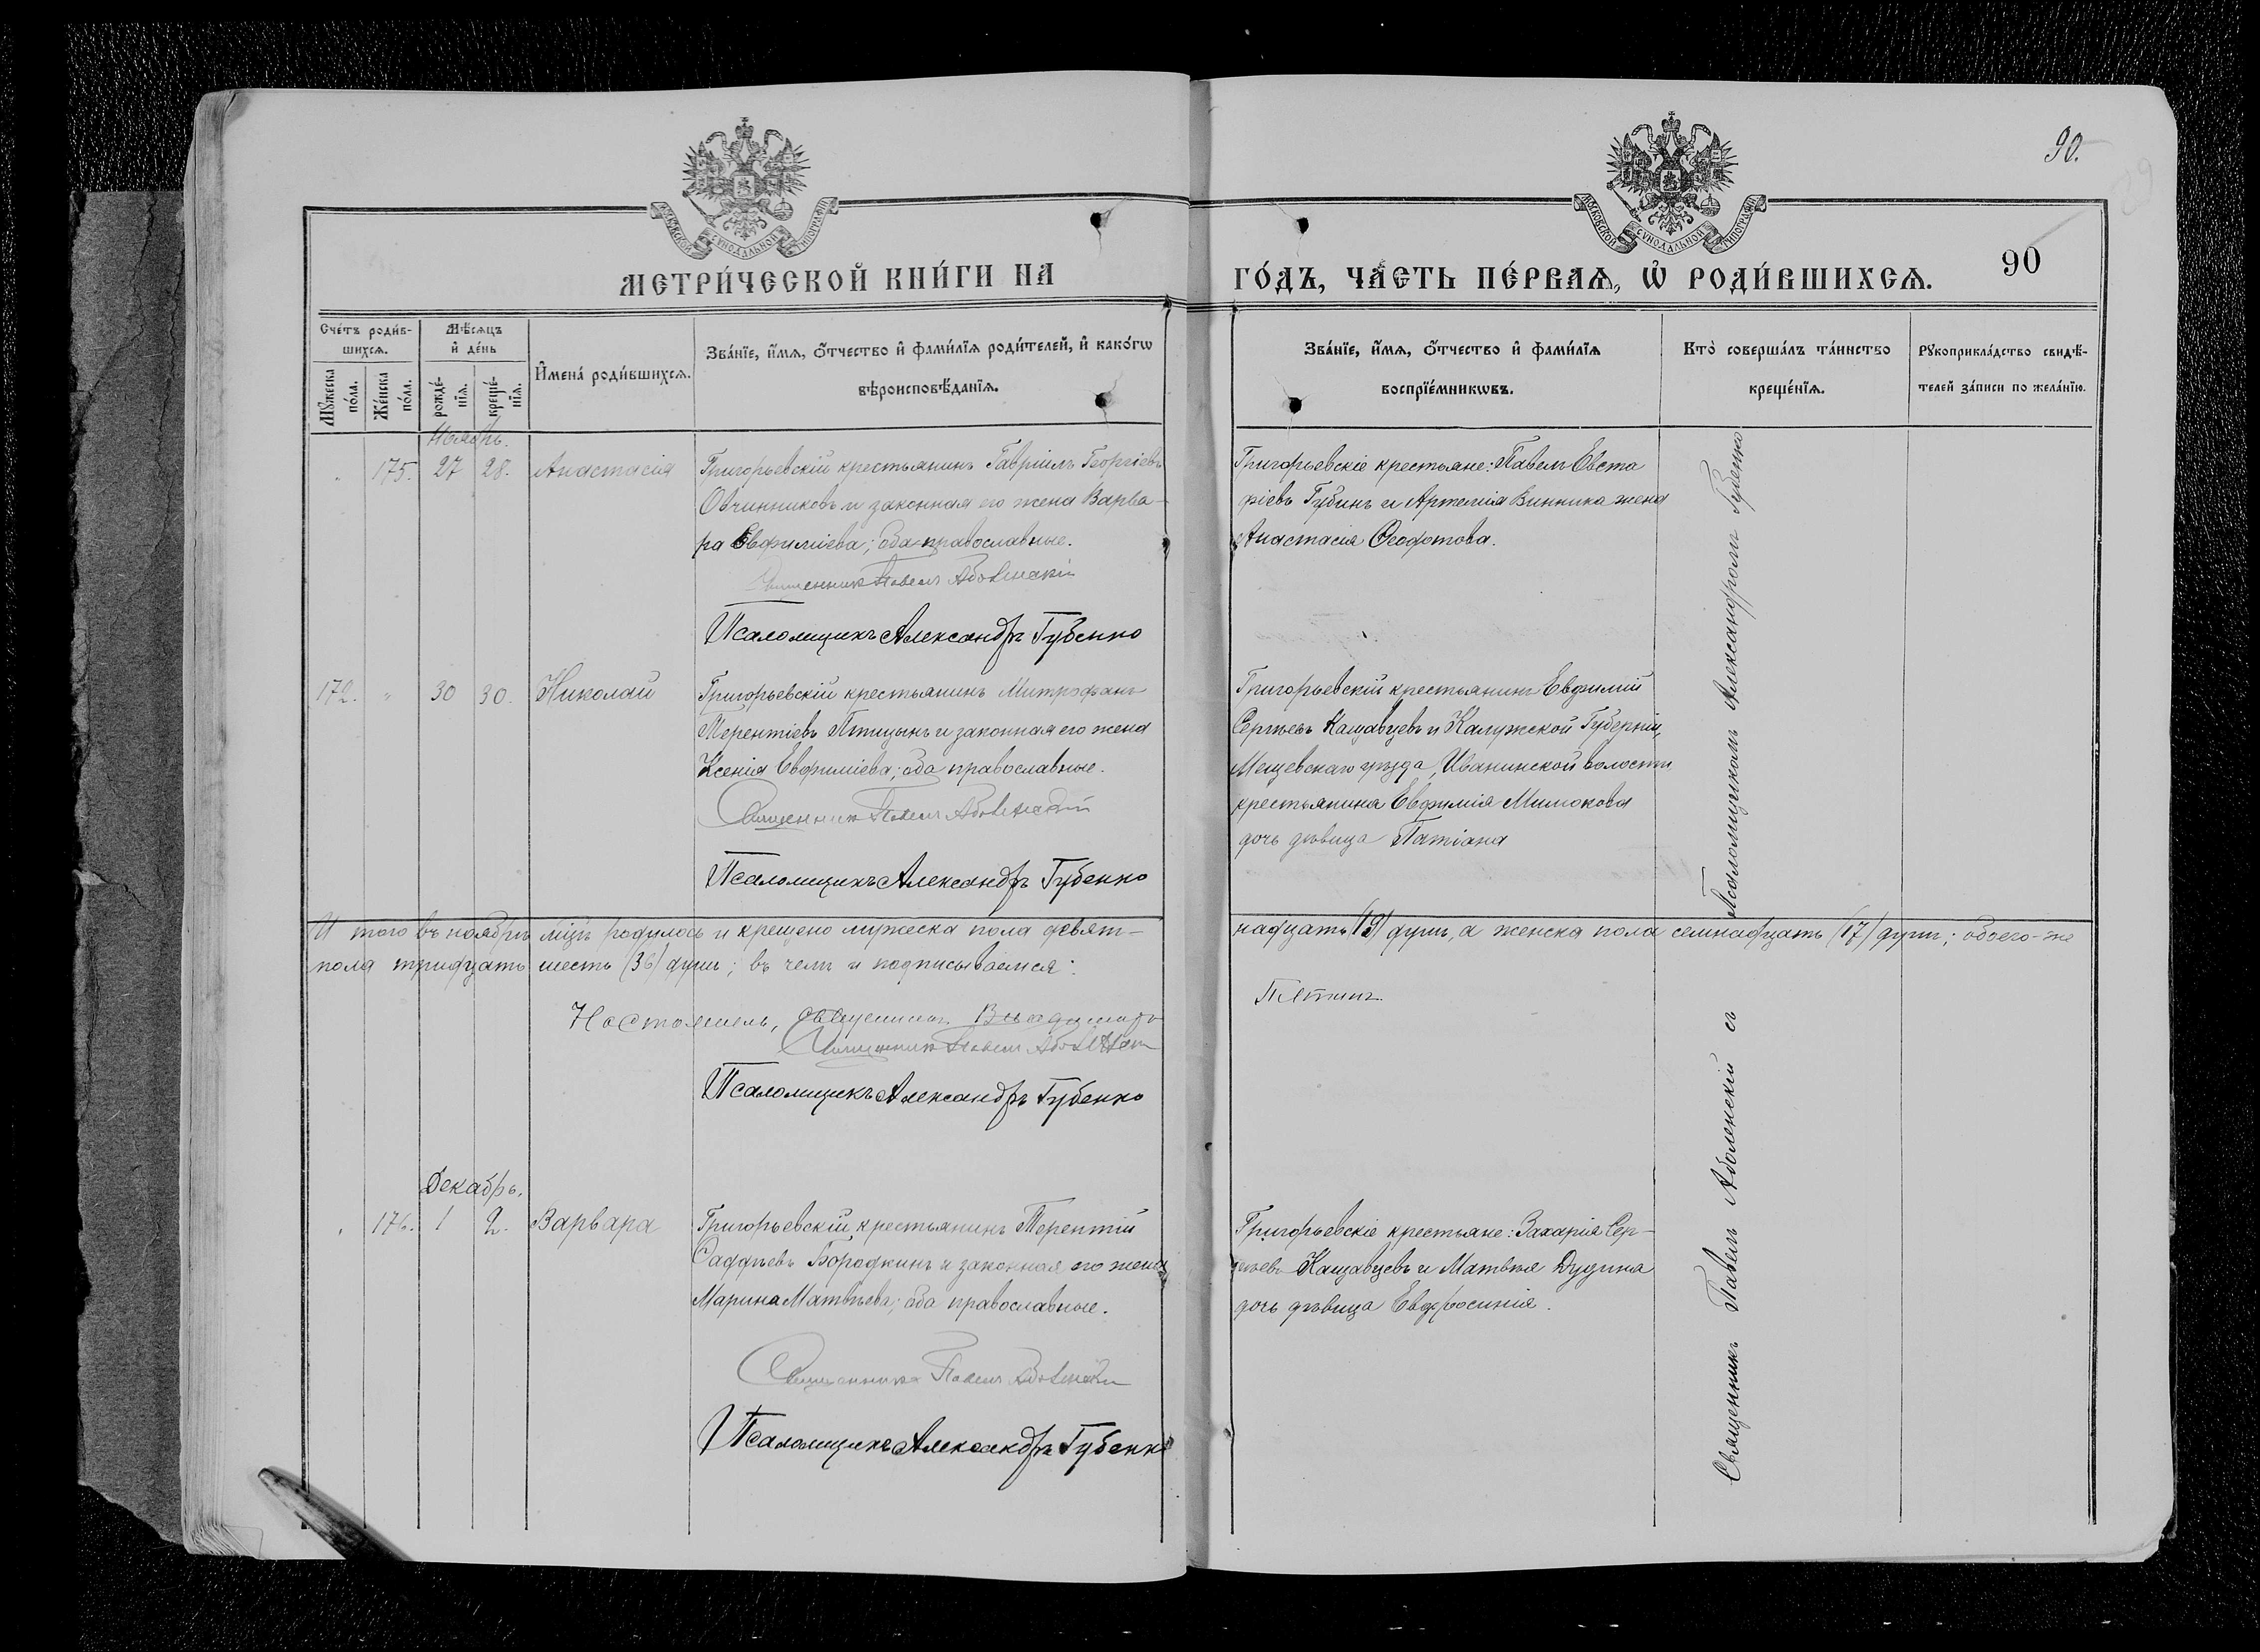 90.
МОСКОВСКОЙ СѴНОДАЛЬНОЙ ТИПОГРАФІИ
МОСКОВСКОЙ СѴНОДАЛЬНОЙ ТИПОГРАФІИ
МЕТРИ́ЧЕСКОЙ КНИ́ГИ НА ГО́ДЪ, ЧА́СТЬ ПЕ́РВАѦ, Ѡ҆ РОДИ́ВШИХСѦ. 90
Сче́тъ роди́в-
шихсѧ.
Мꙋ́жеска по́ла.
Же́нска по́ла.
Мѣ́сѧцъ
и҆ де́нь
рожде́-
нїѧ.
креще́-
нїѧ.
И҆мена́ роди́вшихсѧ.
Зва́нїе, и҆́мѧ, ѻ҆́тчество и҆ фами́лїѧ роди́телей, и҆ како́гѡ
вѣроисповѣ́данїѧ.
Зва́нїе, и҆́мѧ, ѻ҆́тчество и҆ фами́лїѧ
воспрїе́мникѡвъ.
Кто̀ соверша́лъ та́инство
креще́нїѧ.
Рꙋкоприкла́дство свидѣ́-
телей за́писи по жела́нїю.
Ноябрь.
175. 27 28. Анастасія
Григорьевскій крестьянинъ Гавріилъ Георгіевъ
Овчинниковъ и законная его жена Варва-
ра Евфиміева; оба православные.
Священникъ Павелъ Аболенскій
Псаломщикъ Александръ Губенко
Григорьевскіе крестьяне: Павелъ Евста
фіевъ Губинъ и Артемія Винника жена
Анастасія Ѳеофотова.
172. " 30 30. Николай
Григорьевскій крестьянинъ Митрофанъ
Терентіевъ Птицынъ и законная его жена
Ксенія Евфиміева; оба православные.
Священникъ Павелъ Аболенскій
Псаломщикъ Александръ Губенко
Григорьевскій крестьянинъ Евфимій
Сергѣевъ Кащавцевъ и Калужской Губерніи,
Мещевскаго уѣзда, Иванинской волости
крестьянина Евфимія Милюкова
дочь дѣвица Татіана
И того въ ноябрѣ мцѣ родилось и крещено мужеска пола девят-
надцать (19) душъ, а женска пола семнадцать (17) душъ; обоего-же
пола тридцать шесть (36) душъ; въ чемъ и подписываемся:
Настоятель, священникъ Владиміръ
Пѣтинъ.
Священникъ Павелъ Аболенскій
Псаломщикъ Александръ Губенко
Декабрь.
176. 1 2. Варвара
Григорьевскій крестьянинъ Терентій
Саддѣевъ Бородкинъ и законная его жена
Марина Матвѣева; оба православные.
Священникъ Павелъ Аболенскій
Псаломщикъ Александръ Губенко
Григорьевскіе крестьяне: Захарія Сер-
гѣевъ Кащавцевъ и Матвѣя Дудина
дочь дѣвица Евфросинія.
Священникъ Павелъ Аболенскій съ Псаломщикомъ Александромъ Губенко